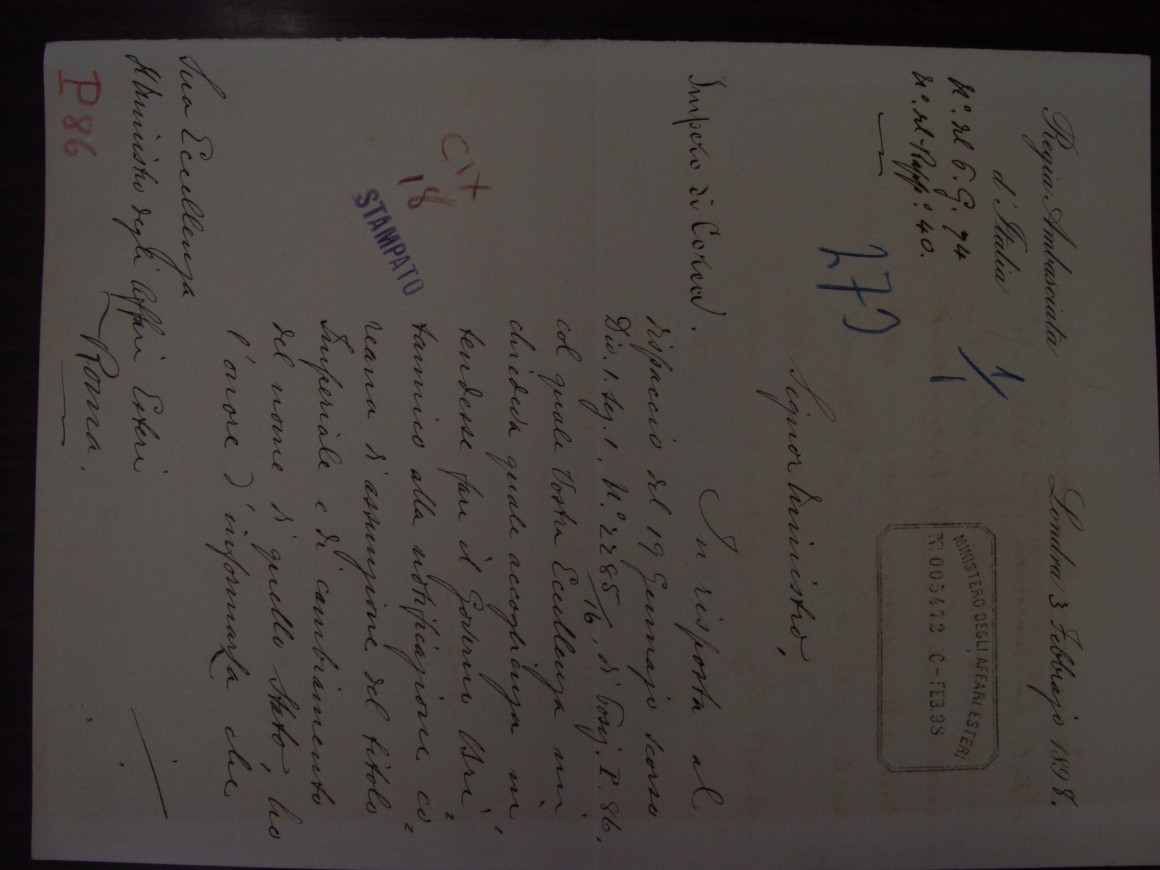 Regia Ambasciata
d'Italia
Londra 3 Febbrajo 1898.
N.° del G. G. 74
N.° del Rapp.° 40.
1/1
MINISTERO DEGLI AFFARI ESTERI
N. 005472 FEB.98
273
Signor Ministro,
Impero di Corea.
In risposta al
dispaccio del 19 Gennajo scorso
Div. 1. Sez. 1. N.° 2285/16, di Posiz. P. 86,
col quale Vostra Eccellenza mi
chiedeva quale accoglienza in=
tendesse fare il Governo Bri=
tannico alla notificazione co=
reana d'assunzione del titolo
Imperiale e di cambiamento
del nome di quello Stato, ho
l'onore d'informarla che
Cit
18
STAMPATO
Sua Eccellenza
Il Ministro degli Affari Esteri
Roma.
P 86